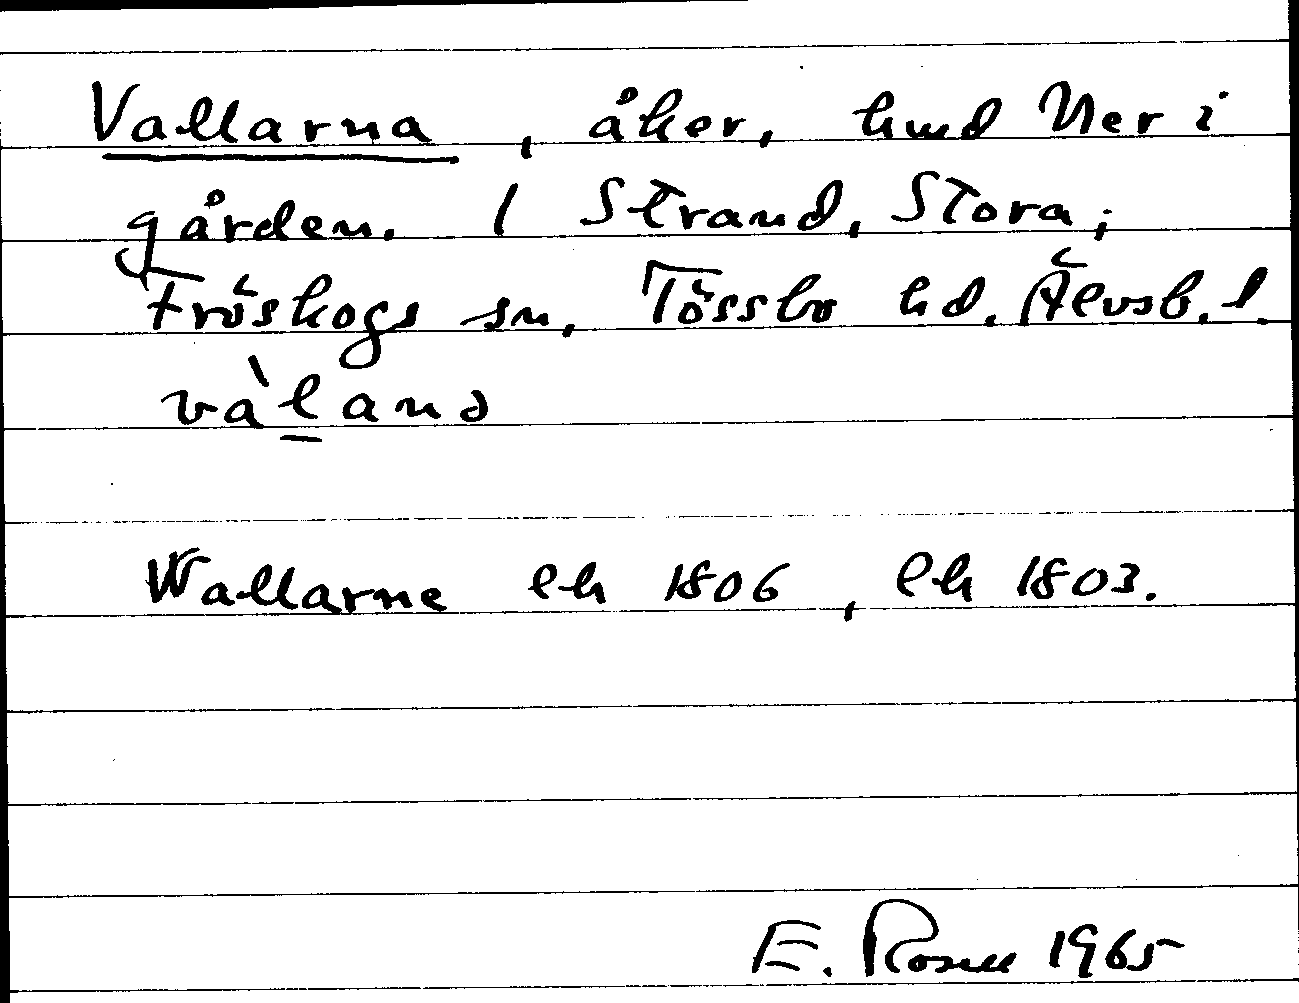 Vallarna, åker, hmd Ner i
gården. I Strand, Stora,
Fröskogs sn, Tössbo hd. Älvsb. l.
vàl̲anə
Wallarne eh 1806, eh 1803.
E. 1965